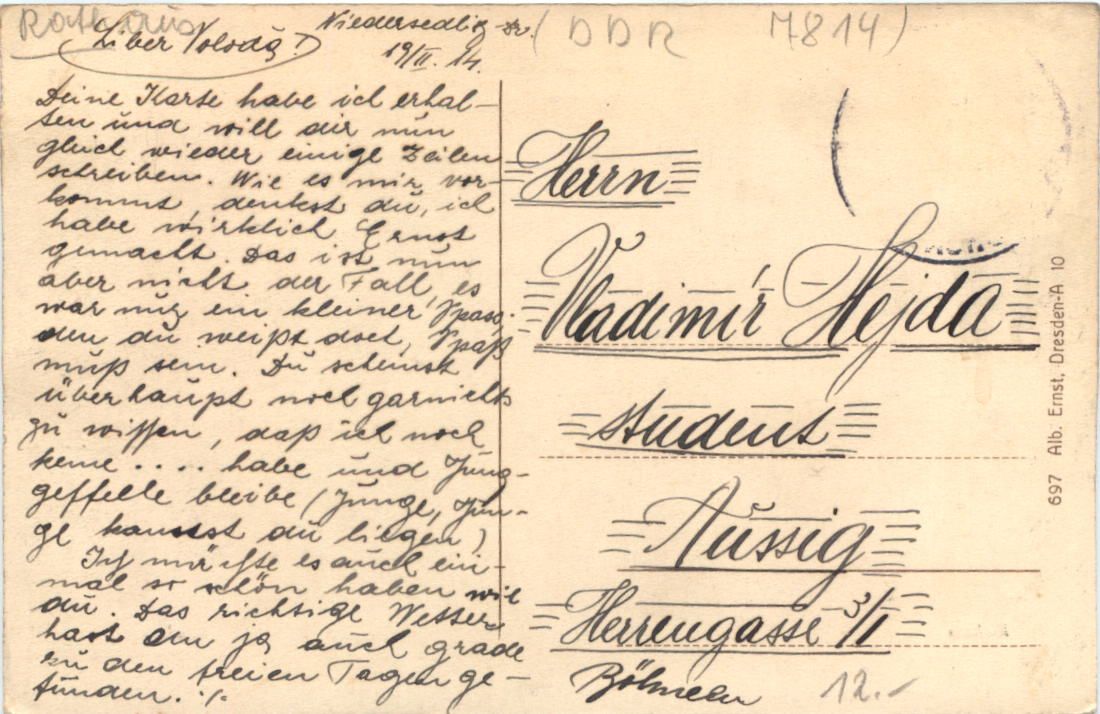 Rathaus
(DDR 7814)
Niedersedlitz-Dr.
19/II. 14.
Liber Volodä!
Deine Karte habe ich erhal-
ten und will dir nun
gleich wieder einige Zeilen
schreiben. Wie es mir vor-
kommt, denkst du, ich
habe wirklich Ernst
gemacht. Das ist nun
aber nicht der Fall, es
war nur ein kleiner Spass.
den du weißt doch, Spaß
muß sein. Du scheinst
überhaupt noch garnichts
zu wissen, daß ich noch
keine .... habe und Jung-
geselle bleibe (Junge, Jun-
ge kannst du liegen)
Ich möchte es auch ein-
mal so schön haben wie
du. Das richtige Wetter
hast du ja auch grade
zu den freien Tagen ge-
funden. ./.
Herrn
Vladimír Hejda
Student
Aussig
Herrengasse 3/I
Böhmen
12.-
697 Alb. Ernst, Dresden-A 10